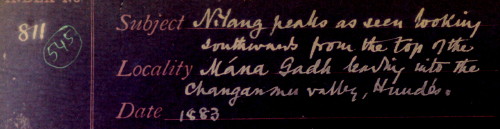 811
545
Subject Nilang peaks as seen looking
southwards from the top of the
Locality Mána Gadh leading into the
changanmu valley, Hundés.
Date 1883